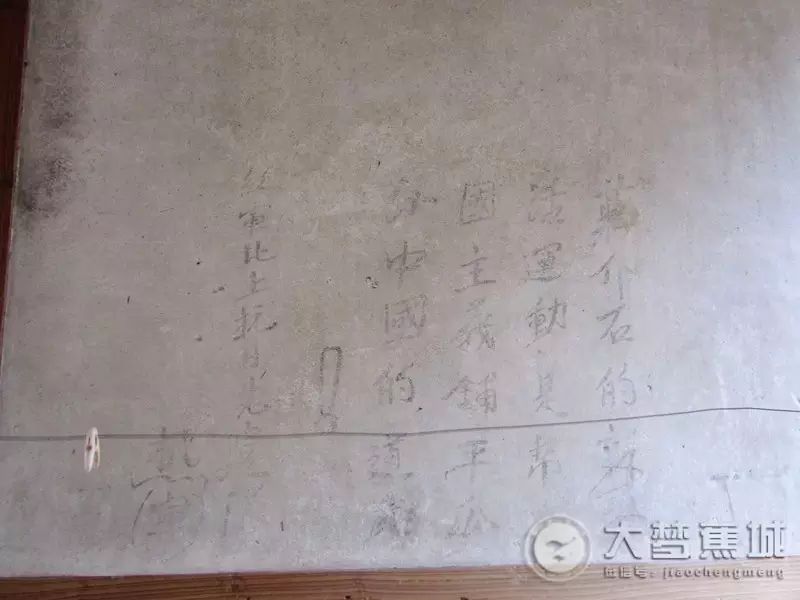 蔣介石的新生
活運動是帝
國主義鋪平瓜
分中國的道路
!
紅軍北上抗日先
宣
大梦蕉城
微信号: jiaochengmeng